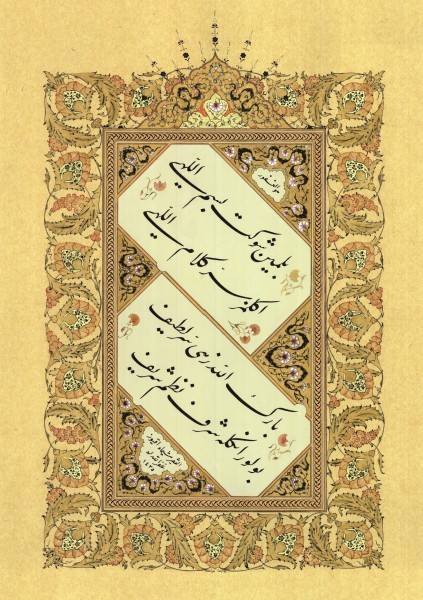 بلمین شوکت بسم اللهی
اکلمز سر کلام اللهی
بارک الله زهی لطیف
بولور انکله شرف نظم شریف